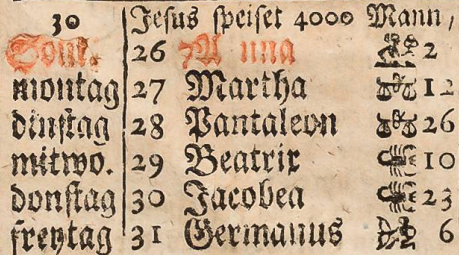 30 Jesus speiset 4000 Mann,
Sont. 26 Anna 2
montag 27 Martha 12
dinstag 28 Pantaleon 26
mitwo. 29 Beatrix 10
donstag 30 Jacobea 23
freytag 31 Germanus 6